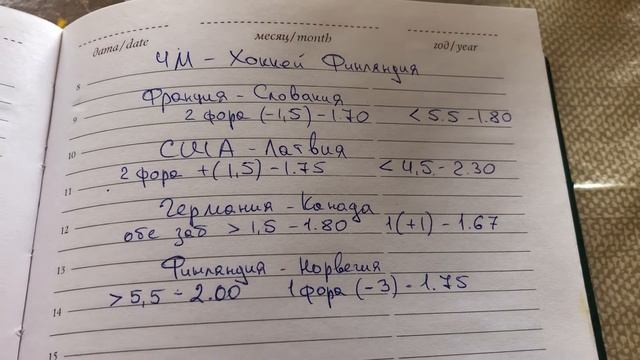 дата/date месяц/month год/year
ЧМ - Хоккей Финляндия
8
Франция - Словакия
9 2 фора (-1,5) - 1.70 < 5.5 - 1.80
10 США - Латвия
2 фора +(1,5) - 1.75 < 4,5 - 2.30
11
Германия - Канада
12 обе заб > 1,5 - 1.80 1(+1) - 1.67
13 Финляндия - Норвегия
> 5,5 - 2.00 1 фора (-3) - 1.75
14
15